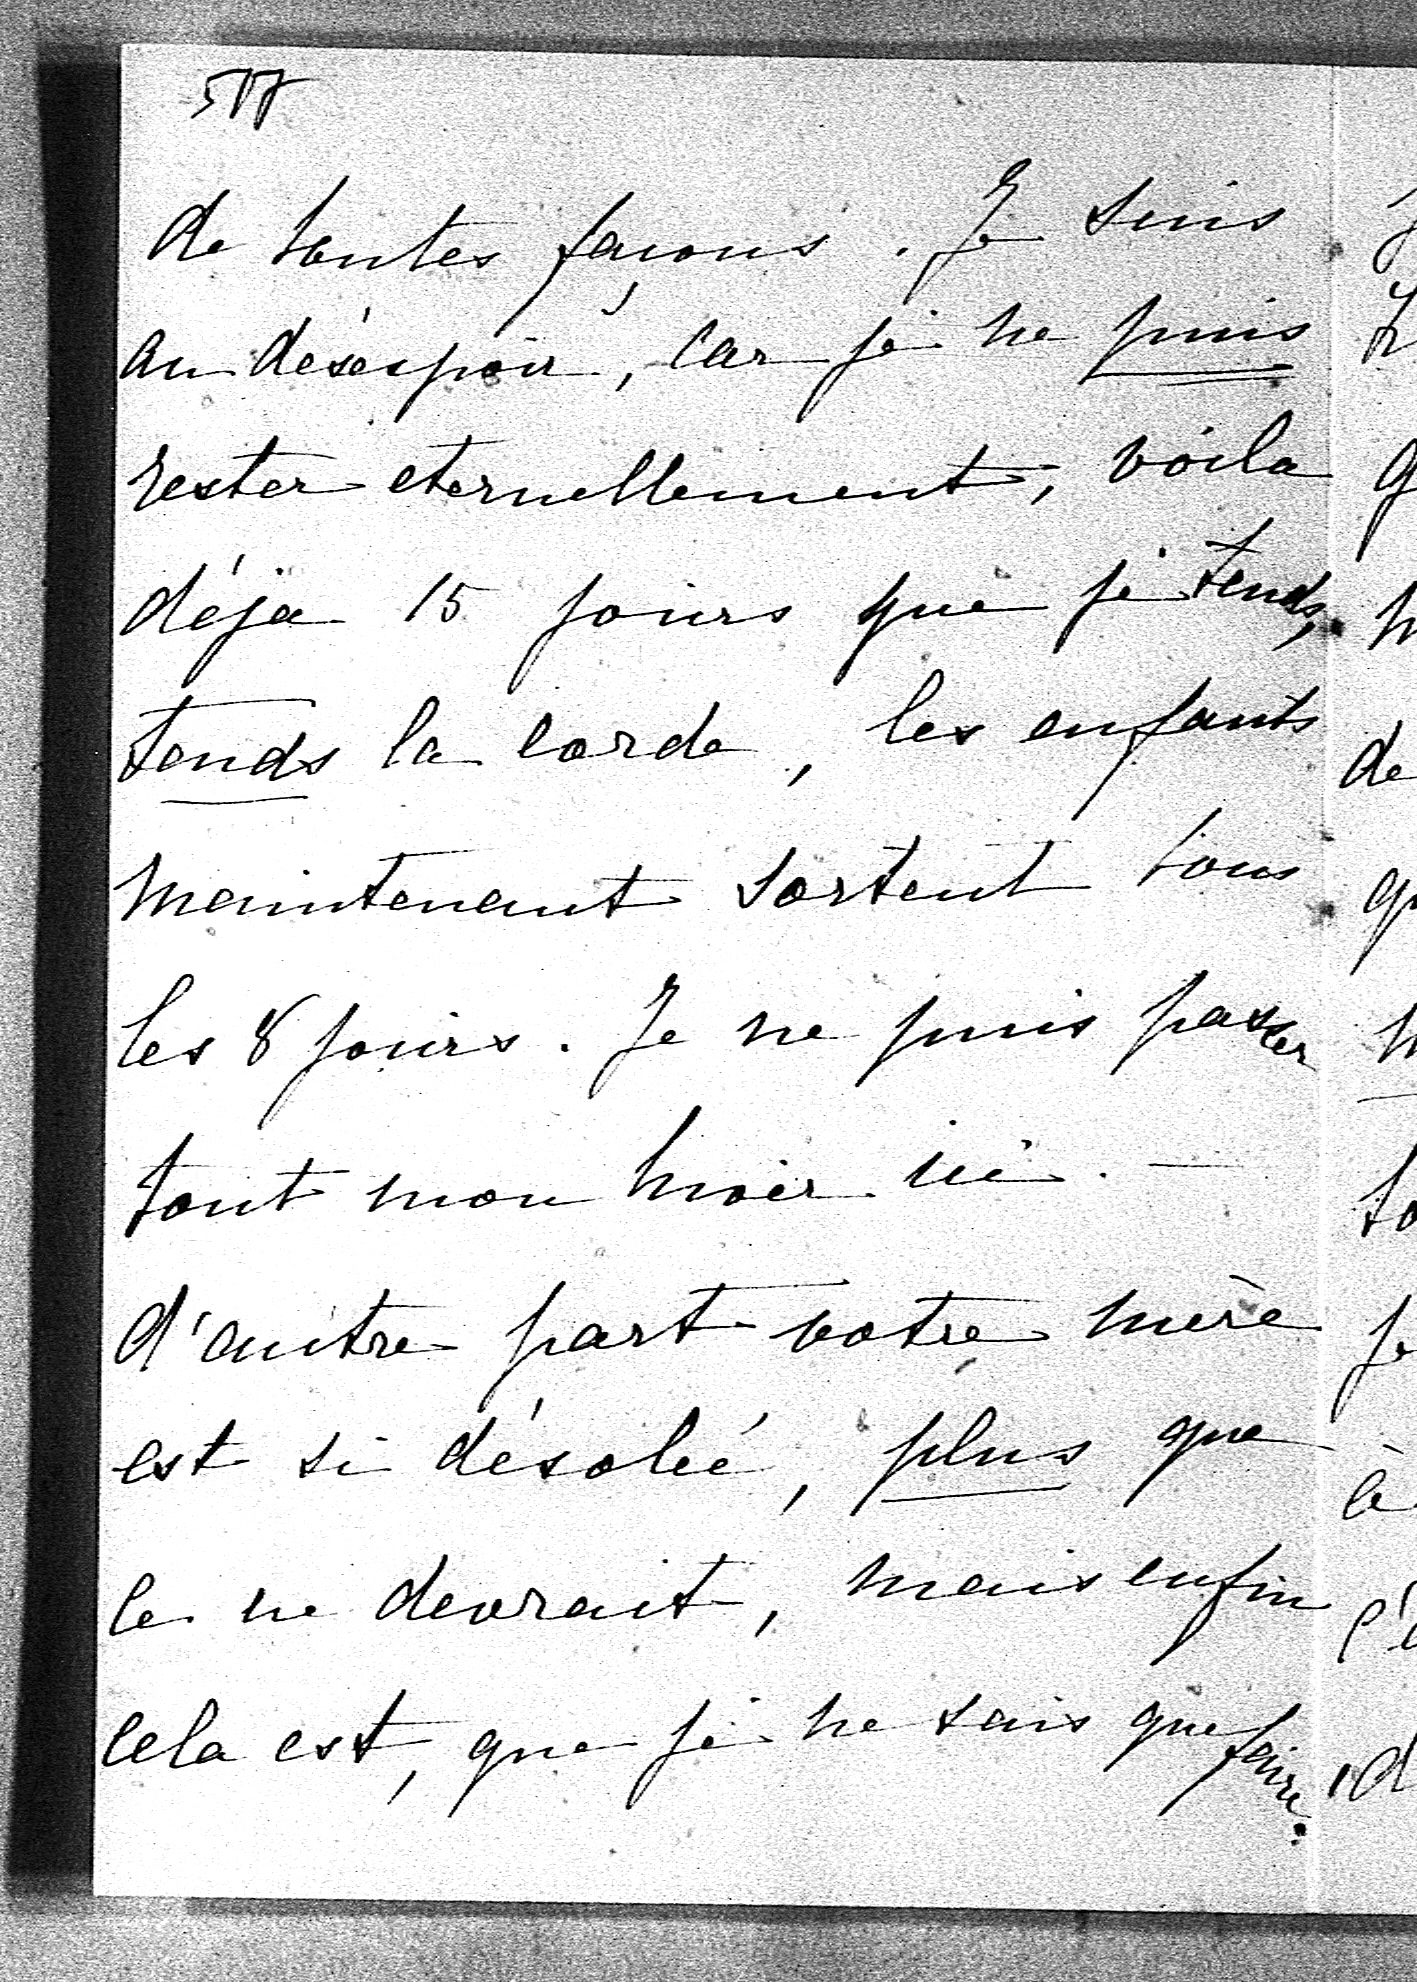 517
de toutes façons. Je suis
au désespoir, car je ne puis
rester eternellement, voila
déja 15 jours que je tends,
tends la corde, les enfants
maintenant sortent tous
les 8 jours. Je ne puis passer
tout mon hiver ici. —
d'autre part votre mère
est si désolée, plus que
ce ne devrait, mais enfin
cela est, que je ne sais que faire.